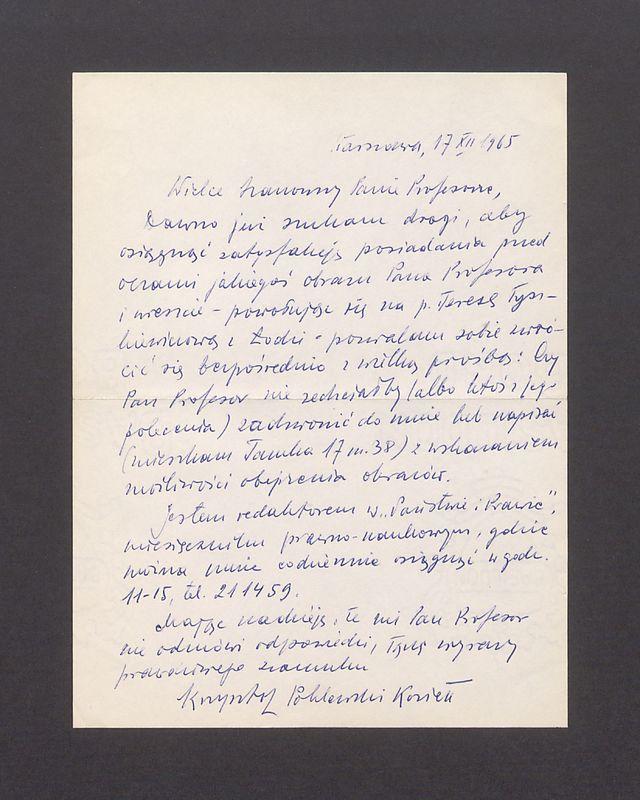 Warszawa, 17 XII 1965
Wielce Szanowny Panie Profesorze,
Dawno już szukam drogi, aby
osiągnąć satysfakcję posiadania przed
oczami jakiegoś obrazu Pana Profesora
i wreszcie - powołując się na p. Teresę Tysz-
kiewiczową z Łodzi - pozwalam sobie zwró-
cić się bezpośrednio z wielką prośbą: Czy
Pan Profesor nie zechciałby (albo ktoś z jego
polecenia) zadzwonić do mnie lub napisać
(mieszkam Tamka 17 m. 38) z wskazaniem
możliwości obejrzenia obrazów.
Jestem redaktorem w „Państwie i Prawie",
miesięczniku prawno-naukowym, gdzie
można mnie codziennie osiągnąć w godz.
11-15, tel. 21 14 59.
Mając nadzieję, że mi Pan Profesor
nie odmówi odpowiedzi, łączę wyrazy
prawdziwego szacunku
Krzysztof